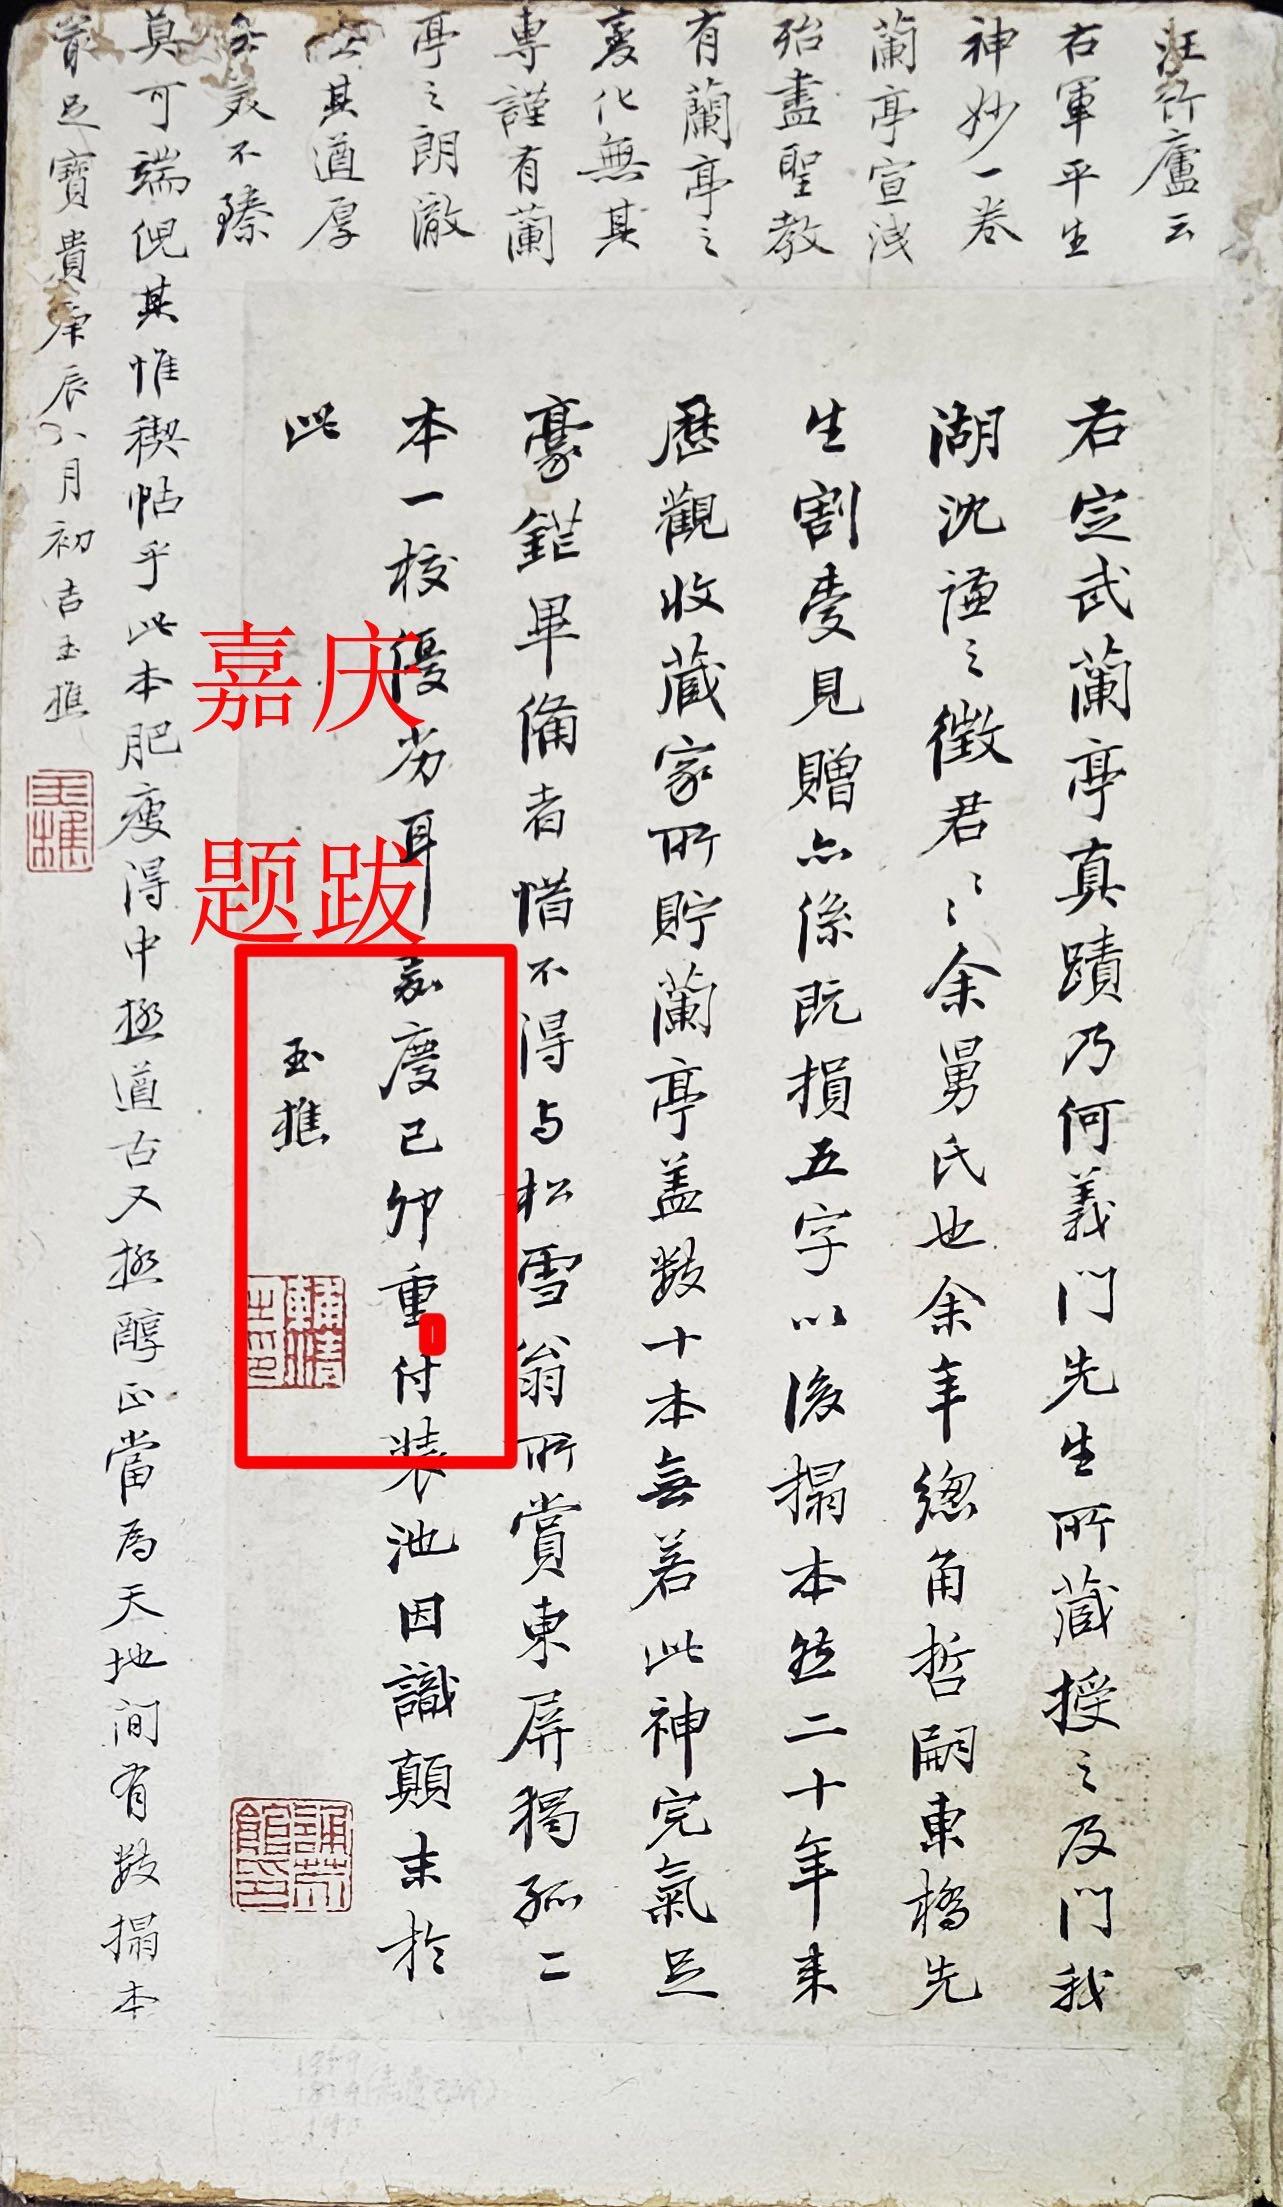 汪竹廬云
右軍平生
神妙一卷
蘭亭宣洩
殆盡聖教
有蘭亭之
變化無其
專謹有蘭
亭之朗澈
其遒厚
美不臻
莫可端倪其惟禊帖乎此本肥瘦得中極遒古又極醇正當為天地間有數搨本
足寶貴庚辰八月初吉玉樵
玉樵
右定武蘭亭真蹟乃何義門先生所藏授之及門我
湖沈謙之徵君〻余舅氏也余年總角哲嗣東橋先
生割愛見贈亦係既損五字以後搨本然二十年來
歷觀收藏家所貯蘭亭蓋數十本無若此神完氣足
豪鋩畢備者惜不得与松雪翁所賞東屏獨孤二
本一校優劣耳嘉慶己卯重付裝池因識顛末於
此
玉樵
嘉庆
题跋